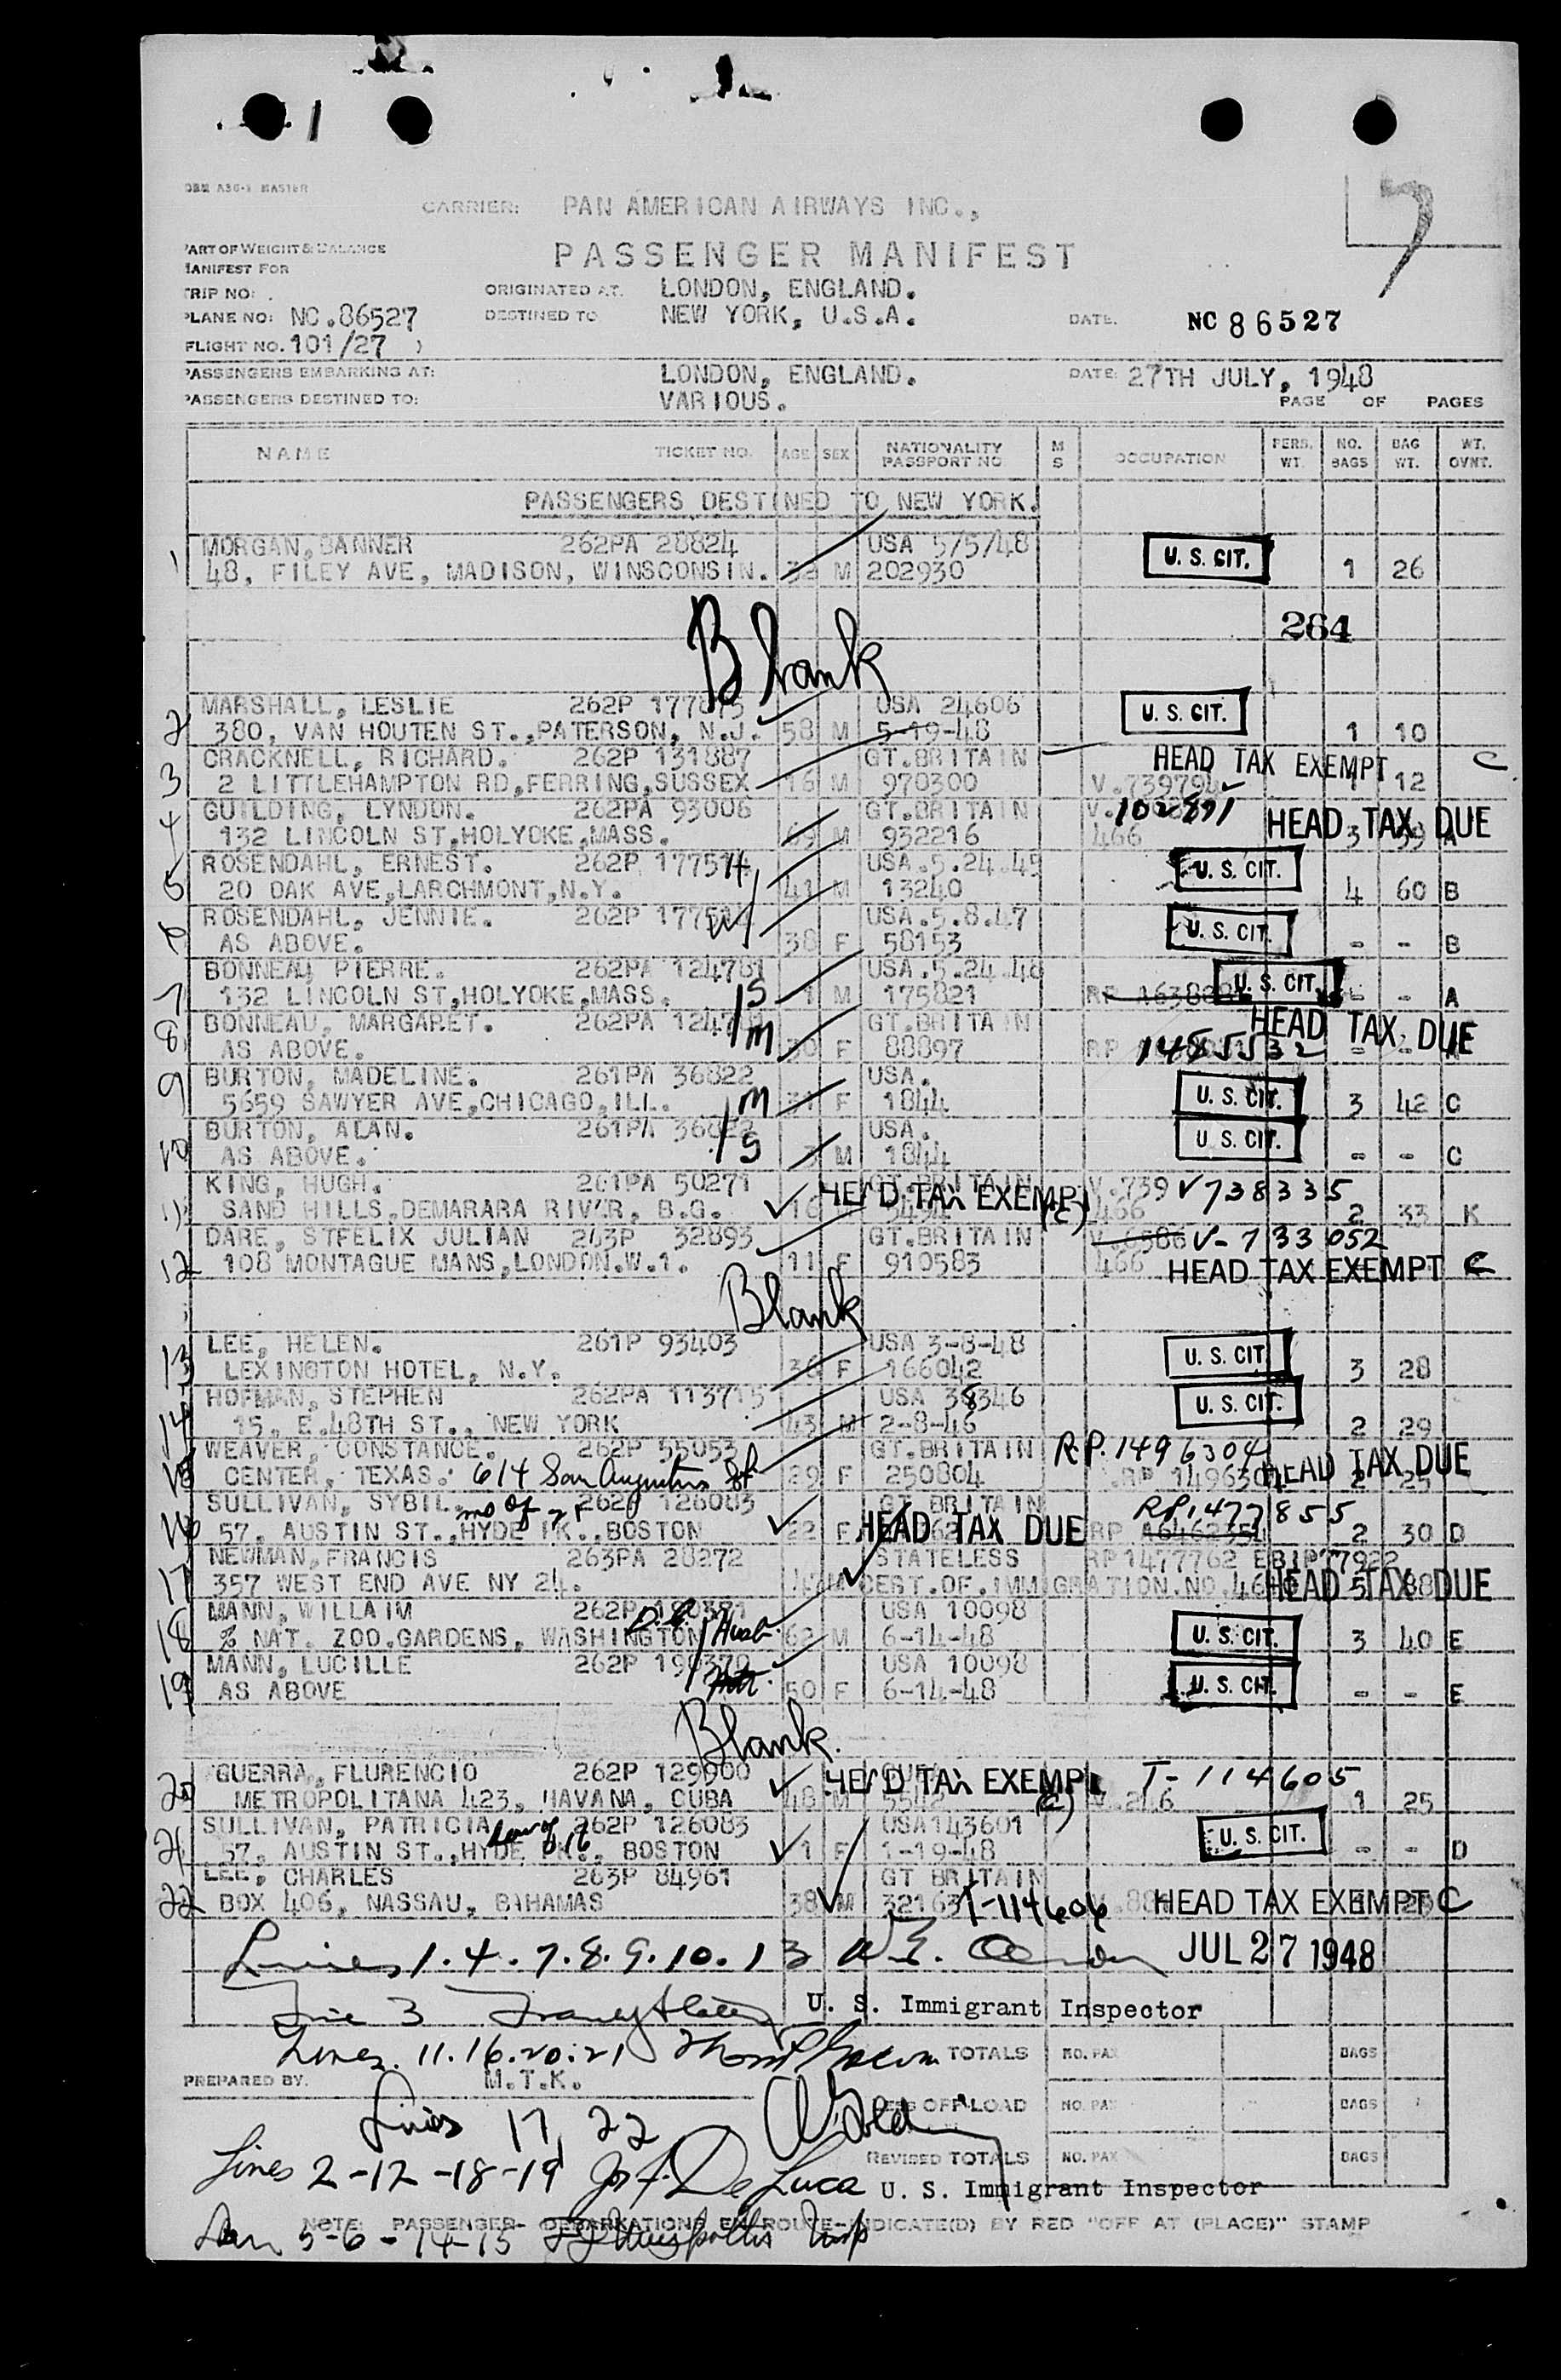 1
DBM A36-1 MASTER
CARRIER: PAN AMERICAN AIRWAYS INC.,
7
PART OF WEIGHT & BALANCE
PASSENGER MANIFEST
MANIFEST FOR
TRIP NO: . ORIGINATED AT. LONDON, ENGLAND.
PLANE NO: NC.86527 DESTINED TO NEW YORK, U.S.A. DATE. NC 86527
FLIGHT NO. 101/27 )
PASSENGERS EMBARKING AT: LONDON, ENGLAND. DATE: 27TH JULY, 1948
PASSENGERS DESTINED TO: VARIOUS. PAGE OF PAGES
NAME TICKET NO. AGE SEX NATIONALITY PASSPORT NO M S OCCUPATION PERS. WT. NO. BAGS BAG WT. WT. OVNT.
PASSENGERS DESTINED TO NEW YORK.
1 MORGAN, BANNER 262PA 28824 USA 5/5/48 U. S. CIT.
48, FILEY AVE, MADISON, WINSCONSIN. 32 M 202930 1 26
264
Blank
MARSHALL, LESLIE 262P 177875 USA 24606 U. S. CIT.
2 380, VAN HOUTEN ST.,PATERSON, N.J. 58 M 5-19-48 1 10
CRACKNELL, RICHARD. 262P 131887 GT.BRITAIN HEAD TAX EXEMPT C
3 2 LITTLEHAMPTON RD,FERRING,SUSSEX 16 M 970300 V.739794 1 12
GUILDING, LYNDON. 262PA 93006 GT.BRITAIN V. 102891 HEAD TAX DUE
4 132 LINCOLN ST,HOLYOKE,MASS. 69 M 932216 466 3 39 A
ROSENDAHL, ERNEST. 262P 177514 USA.5.24.45 U. S. CIT.
5 20 OAK AVE,LARCHMONT,N.Y. 41 M 13240 4 60 B
ROSENDAHL, JENNIE. 262P 177514 USA.5.8.47 U. S. CIT.
6 AS ABOVE. W 38 F 58153 - - B
BONNEAU PIERRE. 262PA 124781 USA.5.24.48 U. S. CIT.
7 132 LINCOLN ST,HOLYOKE,MASS. S 1 M 175821 RP - - A
8 BONNEAU, MARGARET. 262PA 124781 GT.BRITAIN HEAD TAX DUE
AS ABOVE. M 30 F 88897 RP 1485532 - - A
9 BURTON, MADELINE. 261PA 36822 USA. U. S. CIT.
5659 SAWYER AVE,CHICAGO,ILL. M 31 F 1844 3 42 C
BURTON, ALAN. 261PA 36822 USA. U. S. CIT.
10 AS ABOVE. S 3 M 1844 - - C
KING, HUGH. 261PA 50271 GT.BRITAIN HEAD TAX EXEMPT V.739 V738335
11 SAND HILLS,DEMARARA RIVER, B.G. 16 (C) 466 2 33 K
DARE, STFELIX JULIAN 263P 32893 GT.BRITAIN V.6586 V-733052
12 108 MONTAGUE MANS,LONDON.W.1. 11 F 910583 466 HEAD TAX EXEMPT C
Blank
LEE, HELEN. 261P 93403 USA 3-8-48 U. S. CIT.
13 LEXINGTON HOTEL, N.Y. 36 F 166042 3 28
HOFMAN, STEPHEN 262PA 113715 USA 38346 U. S. CIT.
14 15, E.48TH ST., NEW YORK 43 M 2-8-46 2 29
WEAVER, CONSTANCE. 262P 55053 GT.BRITAIN R.P. 1496304 HEAD TAX DUE
15 CENTER, TEXAS. 614 San Augustus St 29 F 250804 RP 1496304 2 25
SULLIVAN, SYBIL. mo of 21 262P 126083 GT BRITAIN R.P. 1477855
16 57, AUSTIN ST.,HYDE PK.,BOSTON 22 F HEAD TAX DUE RP A6462354 2 30 D
NEWMAN, FRANCIS 263PA 28272 STATELESS RP1477762 EBIP77922
17 357 WEST END AVE NY 24. 47 M CEST.OF.IMMIGRATION.NO.46 HEAD TAX DUE 5 88
MANN, WILLAIM 262P 190381 USA 10098
18 % NAT. ZOO.GARDENS, WASHINGTON D.C. Husb. 62 M 6-14-48 U. S. CIT. 3 40 E
MANN, LUCILLE 262P 190379 USA 10098
19 AS ABOVE 50 F 6-14-48 U. S. CIT. - - E
Blank.
GUERRA, FLURENCIO 262P 129900 CUBA HEAD TAX EXEMPT T-114605
20 METROPOLITANA 423, HAVANA, CUBA 48 M 5542 (C) V.246 1 25
SULLIVAN, PATRICIA 262P 126083 USA143601 U. S. CIT.
21 57, AUSTIN ST.,HYDE PK., BOSTON dau of 16 1 F 1-19-48 - - D
LEE, CHARLES 263P 84961 GT BRITAIN
22 BOX 406, NASSAU, BAHAMAS 38 M 32163 T-114606 HEAD TAX EXEMPT C
Lines 1.4.7.8.9.10.13 JUL 27 1948
Line 3 U. S. Immigrant Inspector
Lines. 11.16.20.21 TOTALS NO. PAX BAGS
PREPARED BY. M.T.K.
Lines 17, 22 OFF-LOAD NO. PAX BAGS
Lines 2-12-18-19 Jos F. De Luca REVISED TOTALS NO. PAX BAGS
U. S. Immigrant Inspector
NOTE: PASSENGER- DEBARKATIONS EN ROUTE-INDICATE(D) BY RED "OFF AT (PLACE)" STAMP
5-6-14-15 Insp